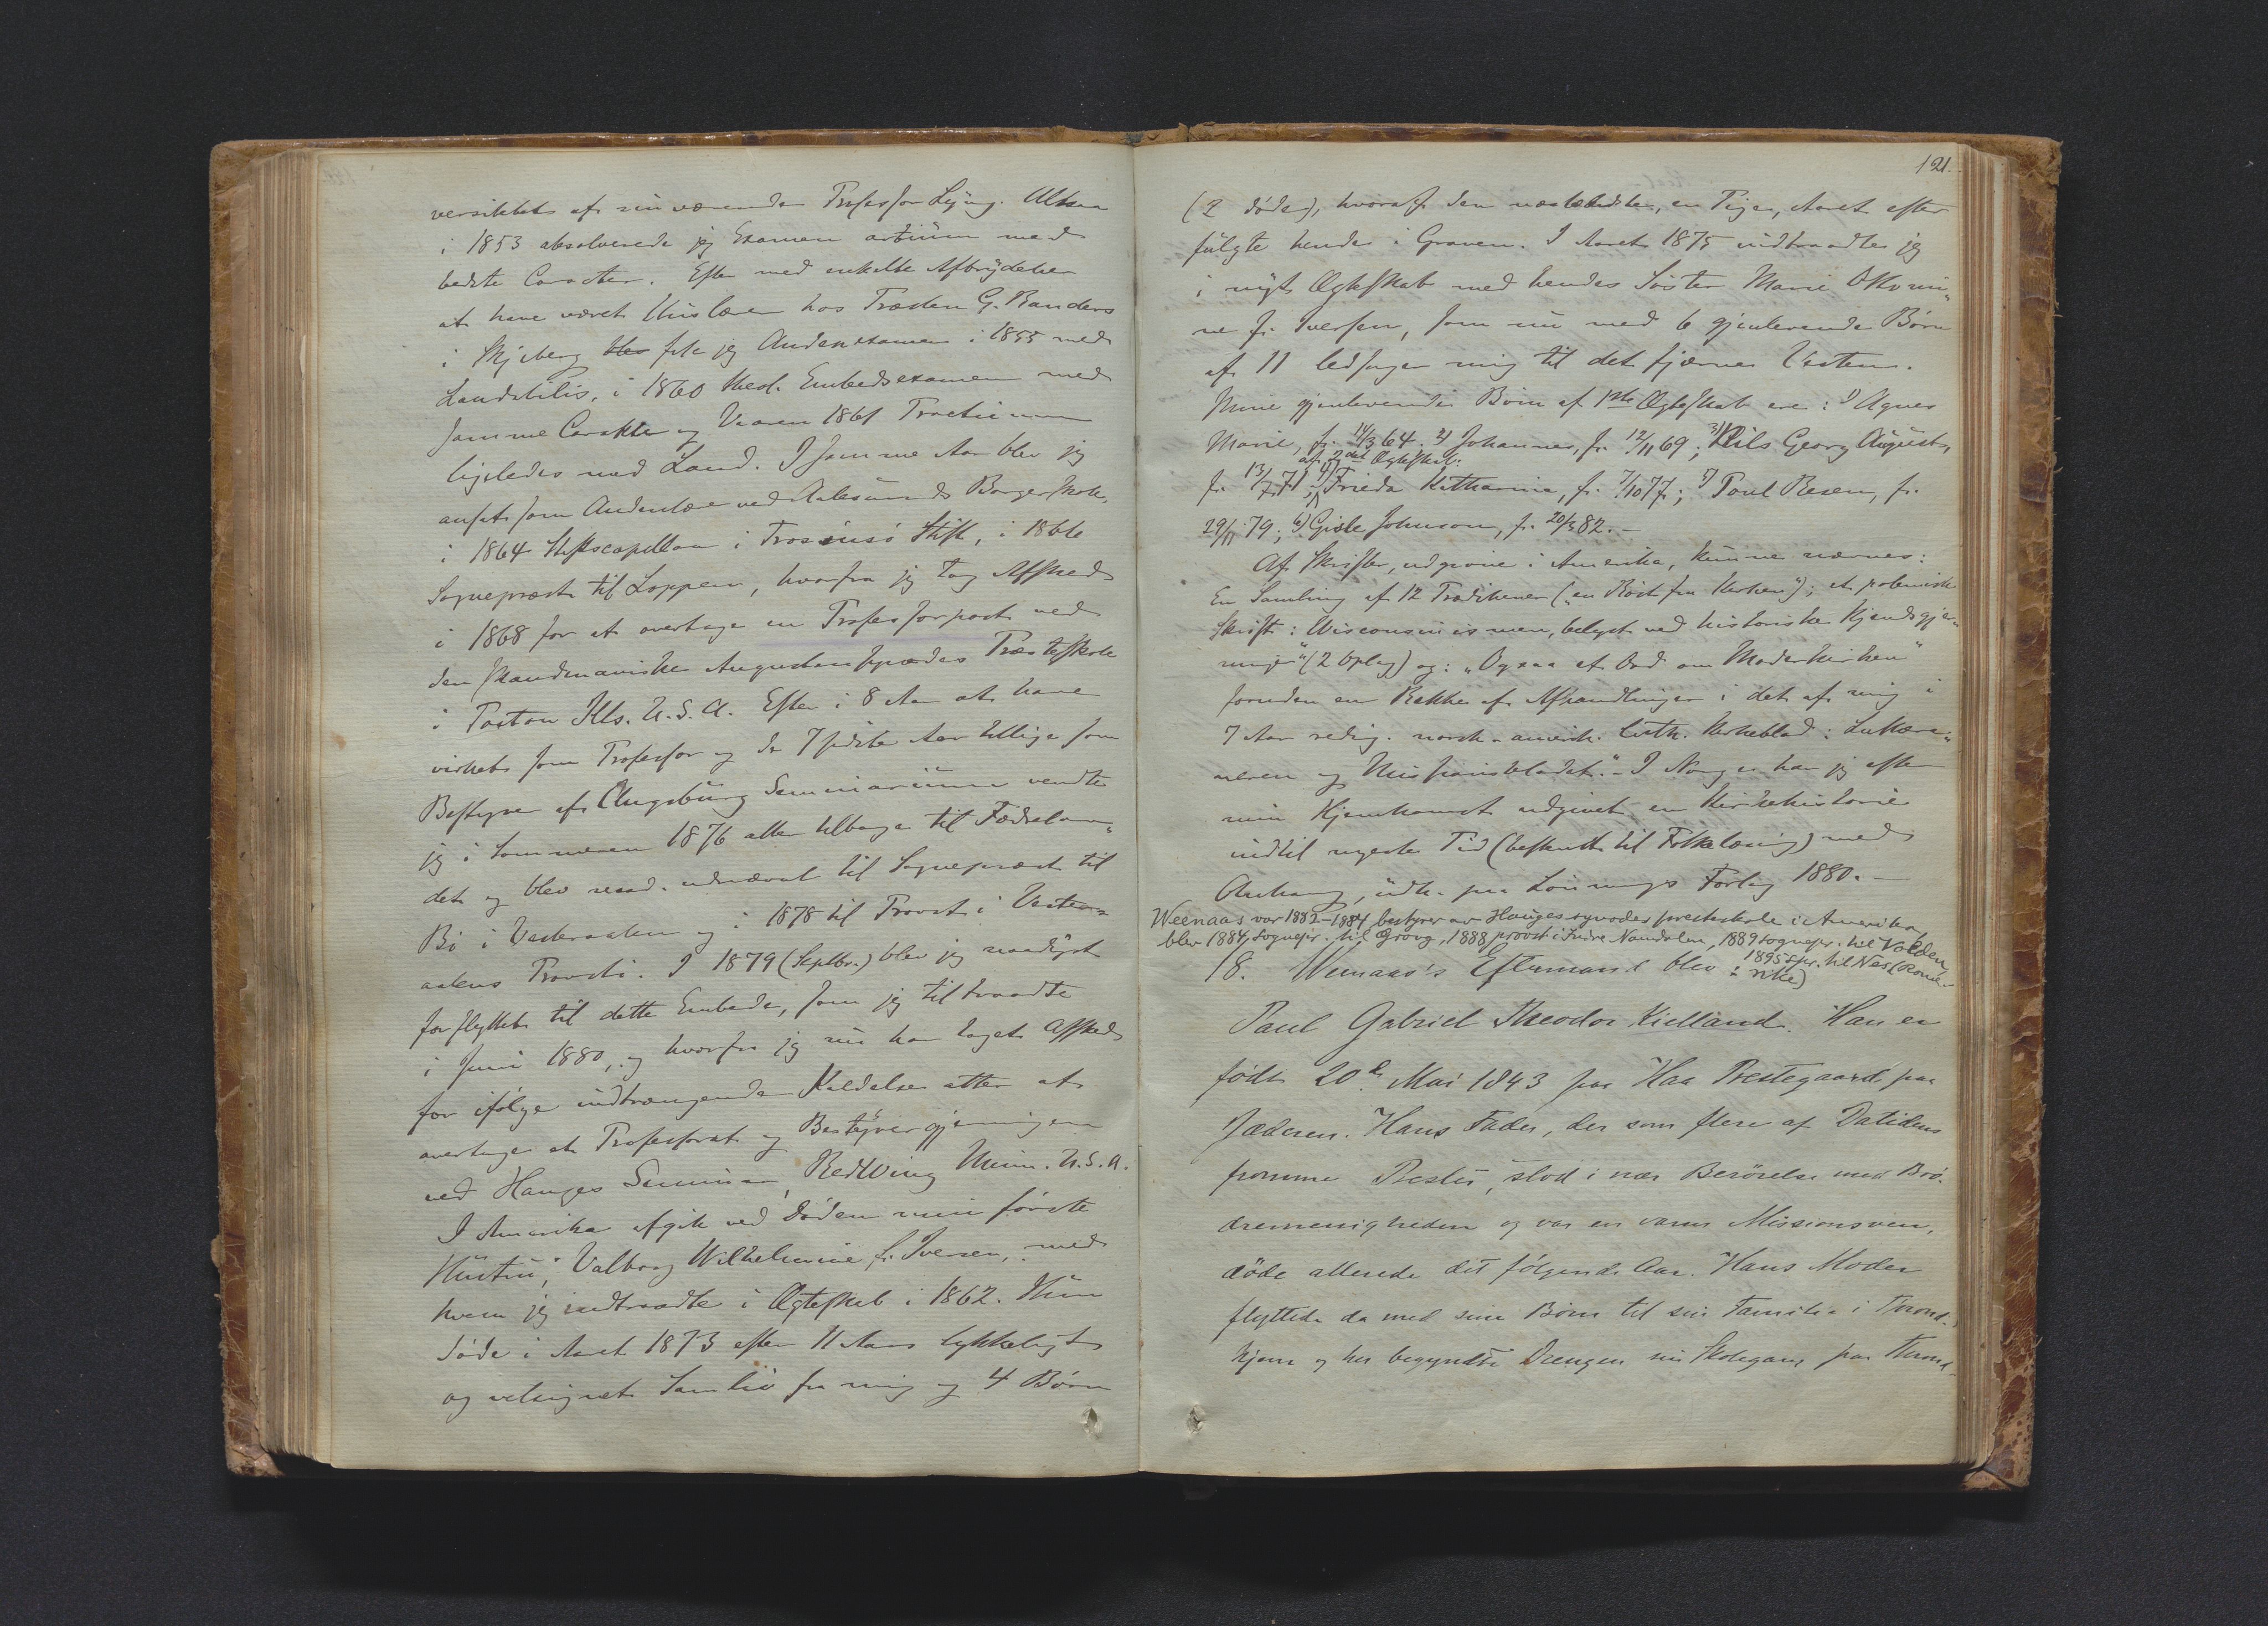 versitetet af nuværende Professor Lyng. Altsaa
i 1853 absolverede jeg Examen artium med
bedste Caracter. Efter med enkelte Afbrydelser
at have været Huslærer hos Præsten G. Randers
i Skjeberg blev fik jeg Andenexamen i 1855 med
Laudabilis, i 1860 theol. Embedsexamen med
samme Carakter og Vaaren 1861 Practicum
ligeledes med Laud. I samme Aar blev jeg
ansat som Andenlærer ved Aalesunds Borgerskole,
i 1864 Stiftscapellan i Tromsø Stift, i 1866
Sognepræst til Loppen, hvorfra jeg tog Afsked
i 1868 for at overtage en Professorpost ved
den skandinaviske Augustanasynodes Præsteskole
i Paxton Ills. U.S.A. Efter i 8 Aar at have
virket som Professor og de 7 sidste Aar tillige som
Bestyrer af Augsburg Seminarium vendte
jeg i Sommeren 1876 atter tilbage til Fædrelan„
det og blev naad. udnævnt til Sognepræst til
Bø i Vesteraalen og i 1878 til Provst i Vester„
aalens Provsti. I 1879 (Septbr.) blev jeg naadigst
forflyttet til dette Embede, som jeg tiltraadte
i Juni 1880, og hvorfra jeg nu har taget Afsked
for ifølge indtrængende Kaldelse atter at
overtage et Professorat og Bestyrergjerningen
ved Hauges Seminar, RedWing Minn. U.S.A.
I Amerika afgik ved Døden min første
Hustru, Valborg Wilhelmine f. Iversen, med
hvem jeg indtraadte i Ægteskab i 1862. Hun
døde i Aaret 1873 efter 11 Aars lykkeligt
og velsignet Samliv fra mig og 4 Børn
121.
(2 døde), hvoraf den næstældste, en Pige, Aaret efter
fulgte hende i Graven. I Aaret 1875 indtraadte jeg
i nyt Ægteskab med hendes Søster Marie
ne f. Iversen, som nu med 6 gjenlevende Børn
af 11 ledsager mig til det fjerne Vesten.
Mine gjenlevende Børn af 1ste Ægteskab ere: 1) Agnes
Marie, f. 14/3 64. 2) Johannes, f. 12/11 69; 3) Nils Georg August,
af 2det Ægteskab:
f. 13/7 71; 4) Frieda Katharina, f. 7/10 77; 5) Poul Resen, f.
29/11 79; 6) Gisle Johnson, f. 20/3 82. –
Af Skrifter, udgivne i Amerika, kunne nævnes:
En Samling af 12 Prædikener („en Røst fra Kirken“); et polemisk
Skrift: Wisconsinismen, belyst ved historiske Kjendsgjer„
ninger“ (2 Oplag) og: „Ogsaa et Ord om Moderkirken“
foruden en Række af Afhandlinger i det af mig i
7 Aar redig. norsk-amerik. luth. Kirkeblad: Luthera„
neren og Missionsbladet“. – I Norge har jeg efter
min Hjemkomst udgivet en Kirkehistorie
indtil nyeste Tid (bestemt til Folkelæsning) med
Anhang, udk. paa Lønnings Forlag 1880. –
Weenaas var 1882–1884 bestyrer av Hauges synodes presteskole i Amerika,
blev 1884 sognepr. til Grong, 1888 provst i Indre Namdalen, 1889 sognepr. til Volden,
1895 spr. til Nes (Rome-
rike)
18. Weenaas's Eftermand blev:
Paul Gabriel Theodor Kielland. Han er
født 20de Mai 1843 paa Haa Prestegaard paa
Jæderen. Hans Fader, der som flere af Datidens
fromme Prester, stod i nær Berørelse med Brø-
dremenigheden og var en varm Missionsven,
døde allerede det følgende Aar. Hans Moder
flyttede da med sine Børn til sin Familie i Thrond-
hjem og her begyndte Drengen sin Skolegang paa Thrond-